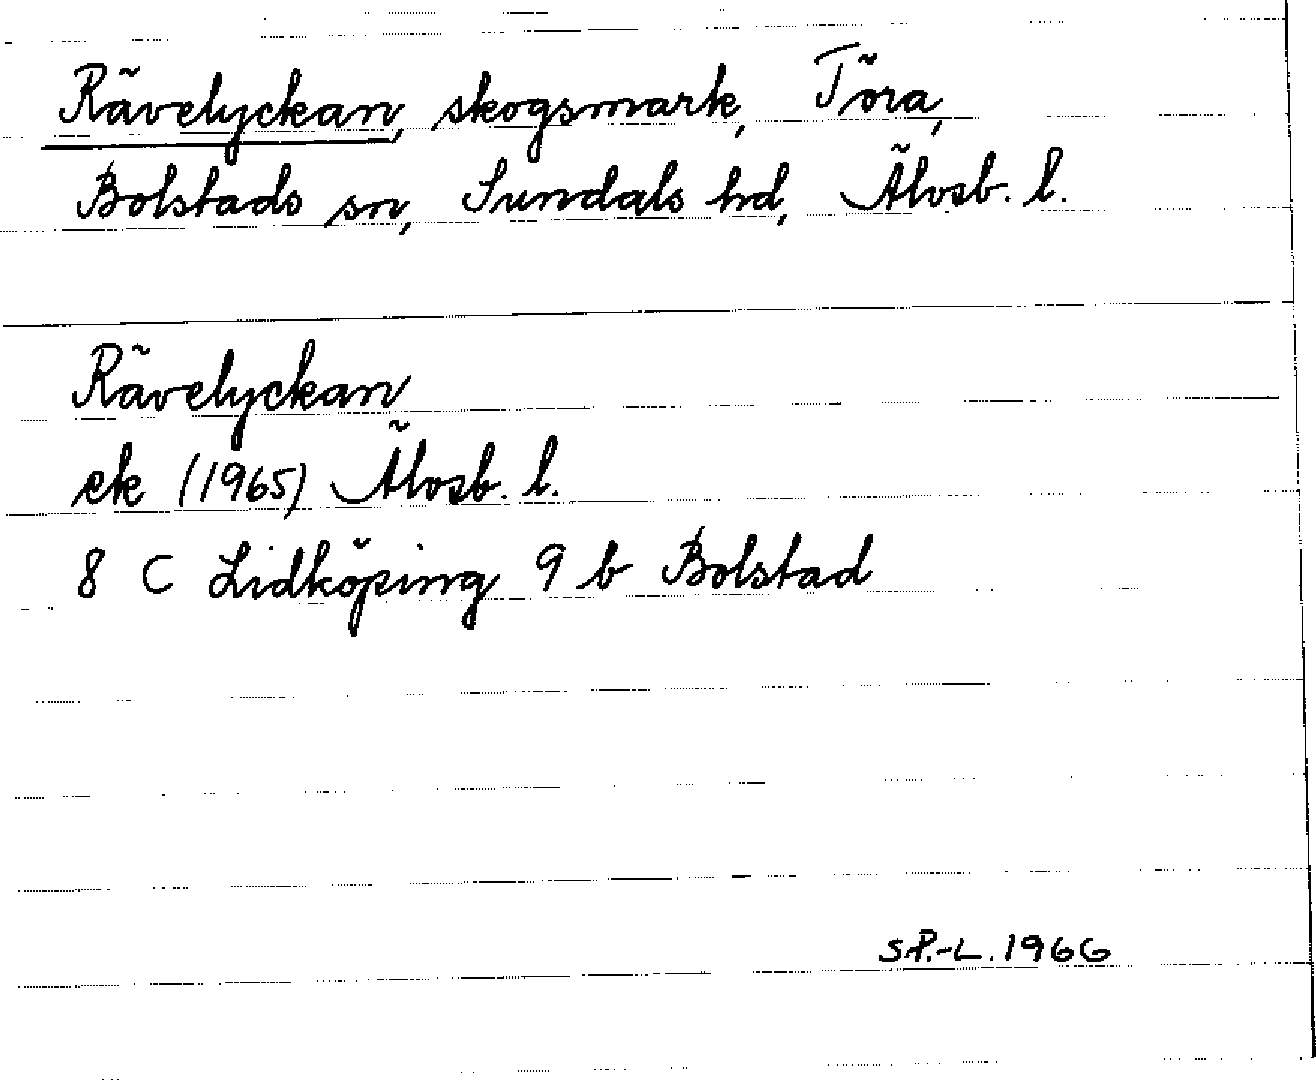 Rävelyckan, skogsmark, Töra,
Bolstads sn, Sundals hd, Älvsb. l.
Rävelyckan
ek (1965) Älvsb. l.
8 C Lidköping 9 b Bolstad
S.P.-L. 1966